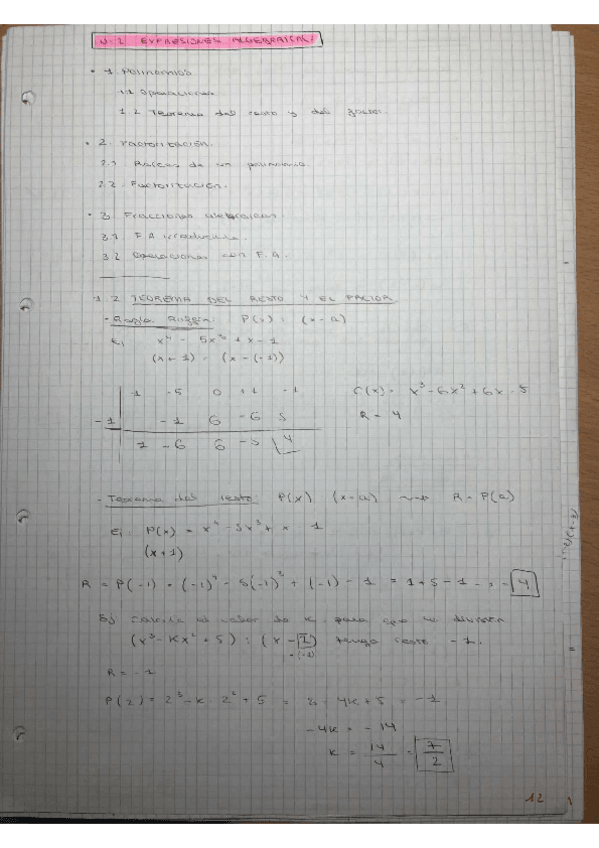 U.2 EXPRESIONES ALGEBRAICAS:
• 1. Polinomios
1.1 Operaciones
1.2 Teorema del resto y del factor.
• 2. Factorización.
2.1 Raíces de un polinomio.
2.2. Factorización.
• 3. Fracciones algebraicas
3.1 F.A irreducible.
3.2 Operaciones con F.A.
1.2 TEOREMA DEL RESTO Y EL FACTOR
- Regla Ruffini: P(x) : (x-a)
Ej x⁴ - 5x³ + x - 1
(x+1) = (x-(-1))
1 -5 0 +1 -1
C(x) = x³ - 6x² + 6x - 5
-1 -1 6 -6 5
R = 4
1 -6 6 -5 4
- Teorema del resto: P(x) (x-a) R = P(a)
Ej: P(x) = x⁴ - 5x³ + x - 1
(x+1)
R = P(-1) = (-1)⁴ - 5(-1)³ + (-1) - 1 = 1+5-1-1 = 4
Ej calcula el valor de K para que la división
(x³ - Kx² + 5) : (x - 2) tenga resto -1.
R = -1
P(2) = 2³ - K · 2² + 5 = 8 - 4K + 5 = -1
-4K = -14
K = 14/4 = 7/2
12